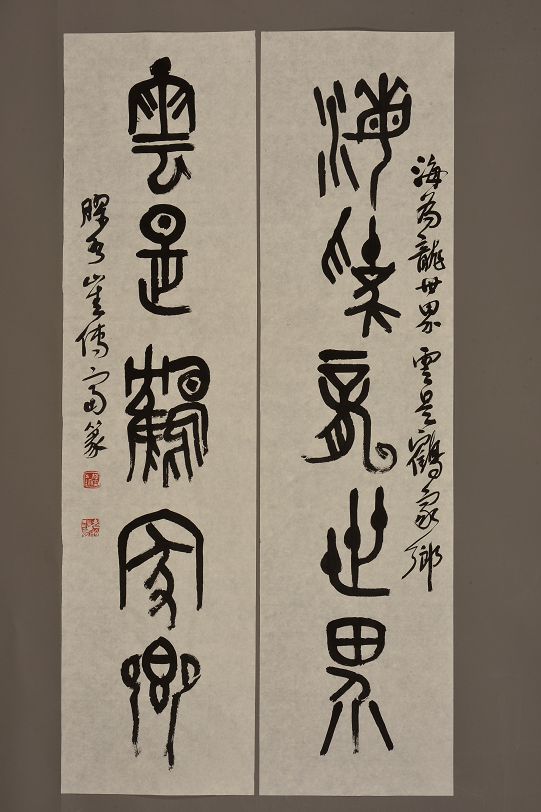 海為龍世界 雲是鶴家鄉
海為龍世界
雲是鶴家鄉
膠西崔傳富篆